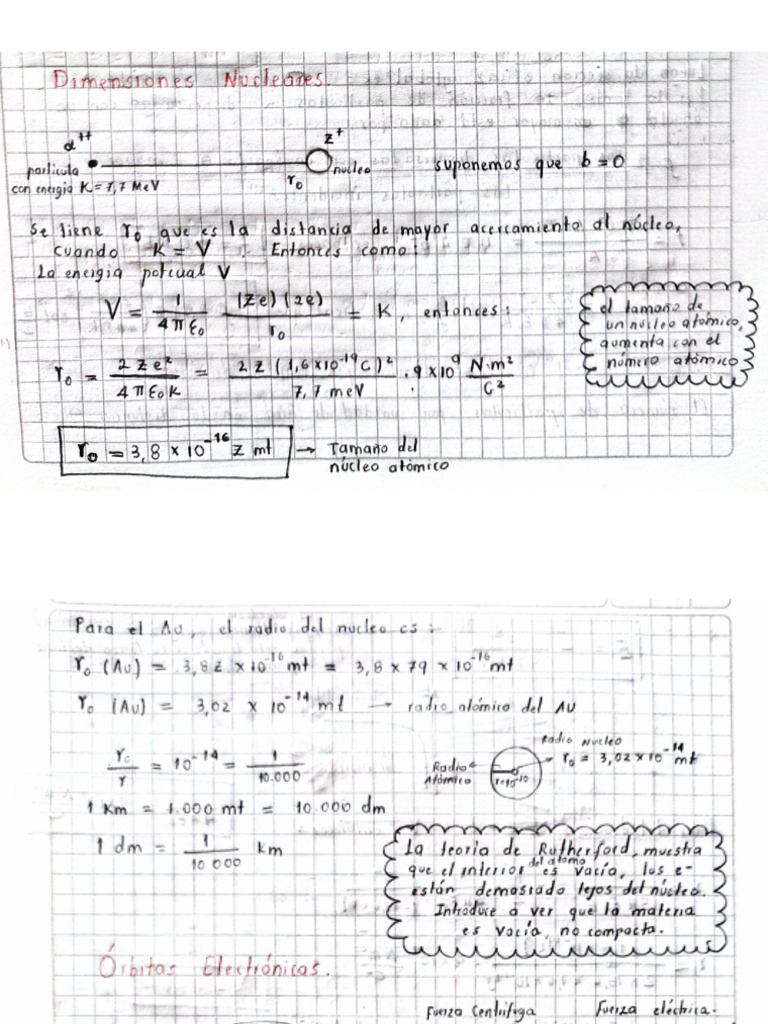 Dimensiones Nucleares.
α⁺⁺
z⁺
particula
con energia K = 7,7 MeV
r₀
nucleo
suponemos que b = 0
Se tiene r₀ que es la distancia de mayor acercamiento al núcleo,
cuando K = V . Entonces como:
La energia potcual V
V = 1/(4πε₀) (Ze)(2e)/r₀ = K, entonces:
r₀ = 2Ze²/(4πε₀K) = 2Z(1,6×10⁻¹⁹C)²/(7,7 meV) . 9×10⁹ N·m²/C²
el tamaño de
un nucleo atómico,
aumenta con el
número atómico
r₀ = 3,8 × 10⁻¹⁶ Z mt → Tamaño del
núcleo atómico
Para el Au, el radio del nucleo es:
r₀ (Au) = 3,8z × 10⁻¹⁶ mt = 3,8 × 79 × 10⁻¹⁶ mt
r₀ (Au) = 3,02 × 10⁻¹⁴ mt → radio atómico del AU
r₀/r = 10⁻¹⁴ = 1/10.000
Radio
Atómico
r=10⁻¹⁰
Radio Nucleo
r₀ = 3,02 × 10⁻¹⁴ mt
1 Km = 1.000 mt = 10.000 dm
1 dm = 1/10 000 km
La teoria de Rutherford, muestra
que el interior del atomo es vacía, los e-
están demostrado lejos del núcleo.
Introduce a ver que la materia
es vacía, no compacta.
Órbitas Electrónicas.
Fuerza Centrifuga
Fuerza eléctrica.